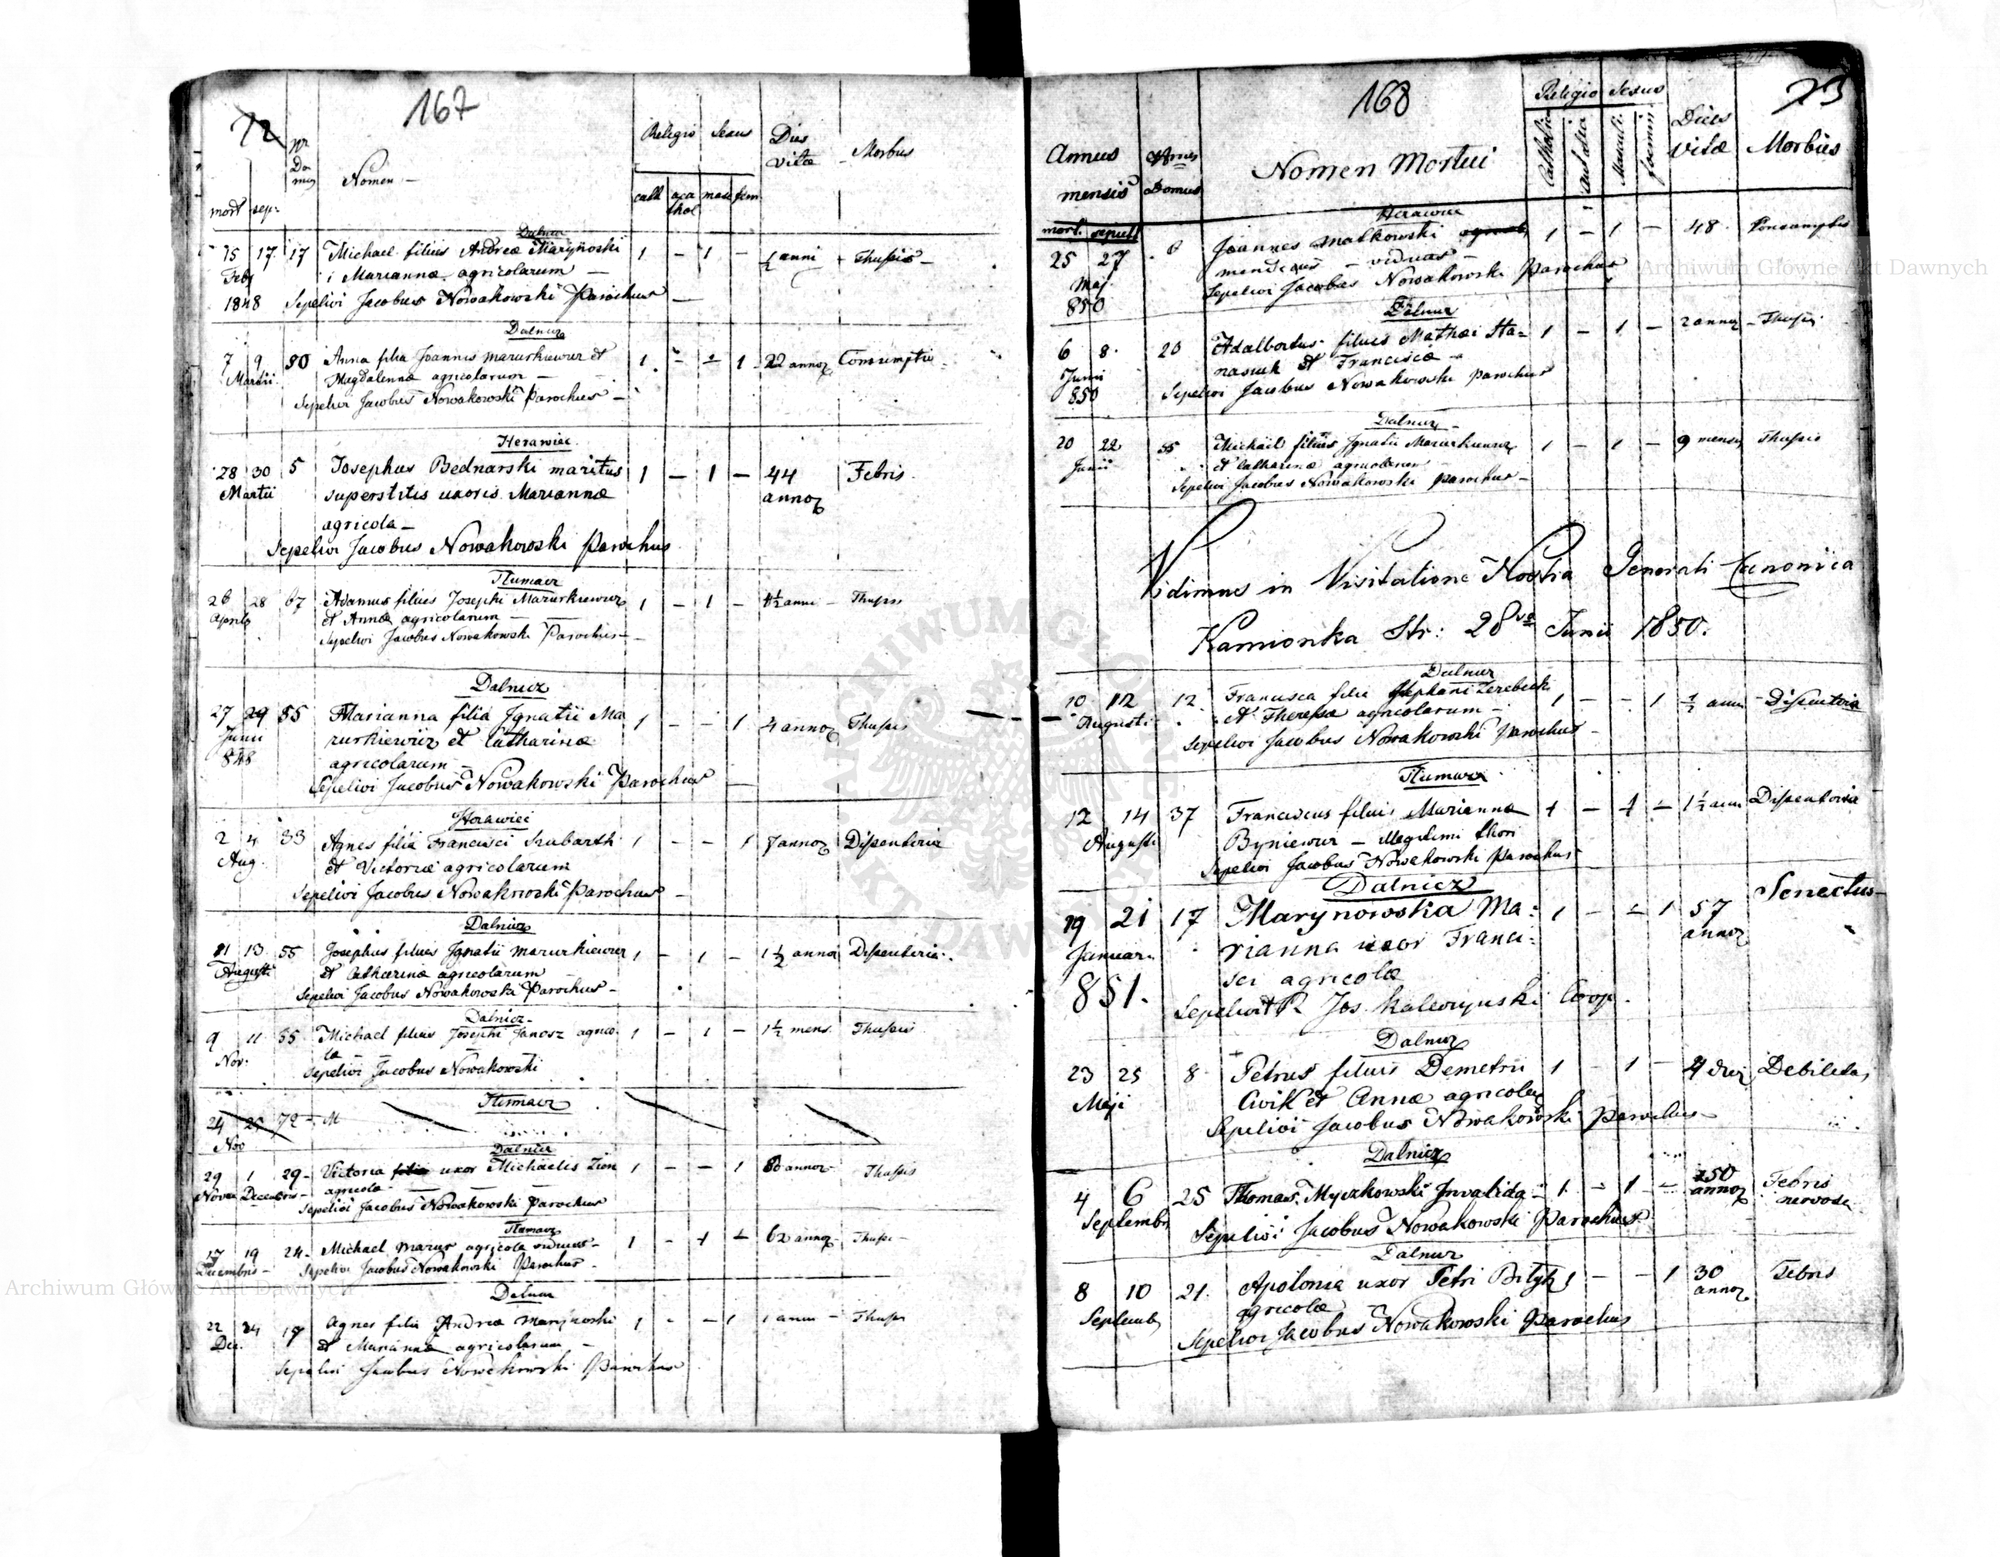 72
167
Nr Domus
Nomen
Religio Sexus
Dies vitæ
Morbus
mort sep.
cath aca thol masc fem
Dalnicz
15 17 17 Michael filius Andreæ Marynoski 1 - 1 - anni Thussis
Feb i Marianna agricolarum
1848 Sepelivi Jacobus Nowakowski Parochus
Dalnicz
7 9 80 Anna filia Joannis Mazurkiewicz et 1 - - 1 22 annor Consumptio
Martii Magdalennæ agricolarum
Sepelivi Jacobus Nowakowski Parochus
Herawiec
28 30 5 Josephus Bednarski maritus 1 - 1 - 44 Febris
Martii superstitis uxoris Mariannæ annor
agricola
Sepelivi Jacobus Nowakowski Parochus
Tłumacz
26 28 67 Adamus filius Josephi Mazurkiewicz 1 - 1 - anni Thussis
Aprilis et Annæ agricolarum
Sepelivi Jacobus Nowakowski Parochus
Dalnicz
27 29 55 Marianna filia Ignatii Ma 1 - - 1 4 annor Thussis
Junii zurkiewicz et Catharinæ
848 agricolarum
Sepelivi Jacobus Nowakowski Parochus
Herawiec
2 4 33 Agnes filia Francisci Szubarth 1 - - 1 7 annor Dissenteria
Aug. et Victoriæ agricolarum
Sepelivi Jacobus Nowakowski Parochus
Dalnicz
11 13 55 Josephus filius Ignatii Mazurkiewicz 1 - 1 - 1½ anno Dissenteria
Augusti et Catharinæ agricolarum
Sepelivi Jacobus Nowakowski Parochus
Dalnicz
9 11 55 Michael filius Josephi Janosz agrico 1 - 1 - 1½ mens. Thussis
Nov. la
Sepelivi Jacobus Nowakowski
Tłumacz
24 25 72 M
Nov
Dalnicz
29 1 29 Victoria filia uxor Michaelis Zion 1 - - 1 80 annor Thussis
Novem Decembris agricola
Sepelivi Jacobus Nowakowski Parochus
Tłumacz
17 19 24 Michael Mazur agricola viduus 1 - 1 - 62 annor Thussis
Decembris Sepelivi Jacobus Nowakowski Parochus
Dalnicz
22 24 17 Agnes filia Andreæ Marynoski 1 - - 1 1 anni Thussis
Dec. et Mariannæ agricolarum
Sepelivi Jacobus Nowakowski Parochus
168
73
Annus mensis
Nrus Domus
Nomen Mortui
Religio Sexus
Catholica Masculi
Dies vitæ
Morbus
mort. sepult
Herawiec
25 27 8 Joannes Małkowski 1 - 1 - 48 Consumptio
Maj. mendicus - viduus
850 Sepelivi Jacobus Nowakowski Parochus
Dalnicz
6 8 20 Adalbertus filius Mathæi Sta= 1 - 1 - 2 annor Thussis
Junii nasiuk et Franciscæ
850 Sepelivi Jacobus Nowakowski Parochus
Dalnicz
20 22 55 Michael filius Ignatii Mazurkiewicz 1 - 1 - 9 mens Thussis
Junii et Catharinæ agricolarum
Sepelivi Jacobus Nowakowski Parochus
Vidimus in Visitatione Nostra Generali Canonica
Kamionka Str: 28va Junii 1850.
Dalnicz
10 12 12 Francisca filia Stephani Zerebecki 1 - - 1 ½ anni Dissenteria
Augusti et Theressæ agricolarum
Sepelivi Jacobus Nowakowski Parochus
Tłumacz
12 14 37 Franciscus filius Mariannæ 1 - 1 - 1½ anni Dissenteria
Augusti Byniewicz - illegitimi thori
Sepelivi Jacobus Nowakowski Parochus
Dalnicz
19 21 17 Marynowska Ma= 1 - - 1 57 Senectus
Januar. rianna uxor Franci= annor
851. sci agricolæ
Sepelivit R. Jos. Coop.
Dalnicz
23 25 8 Petrus filius Demetrii 1 - 1 - 4 dier Debilitas
Maji Cwik et Annæ agricolar
Sepelivi Jacobus Nowakowski Parochus
Dalnicz
4 6 25 Thomas Myczkowski Invalida 1 - 1 - 50 annor Febris nervosa
Septembr Sepelivi Jacobus Nowakowski Parochus
Dalnicz
8 10 21. Apolonia uxor Petri 1 - - 1 30 annor Febris
Septemb agricolæ
Sepelivi Jacobus Nowakowski Parochus
ARCHIWUM GŁÓWNE AKT DAWNYCH
Archiwum Główne Akt Dawnych
Archiwum Główne Akt Dawnych